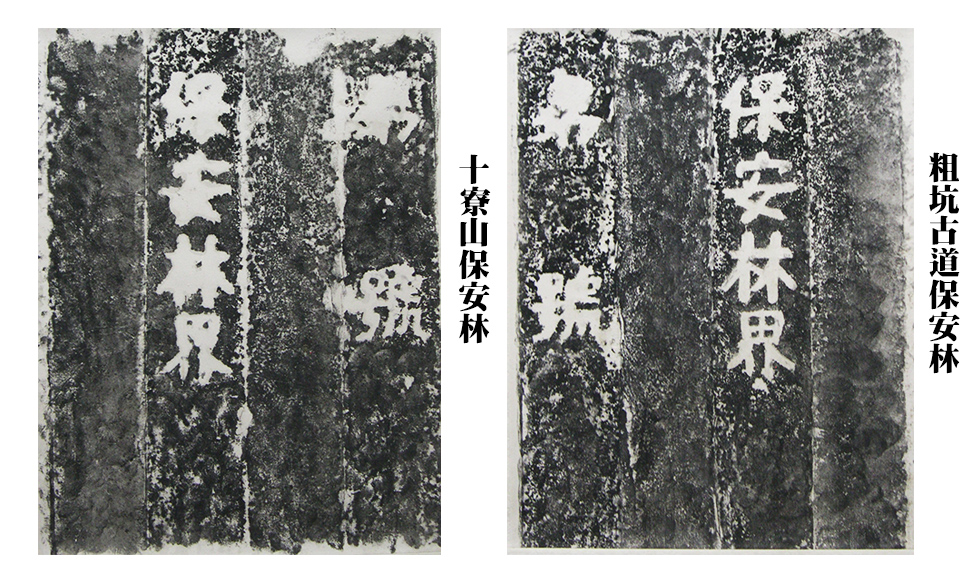 粗坑古道保安林
保安林界
號
十寮山保安林
號
保安林界